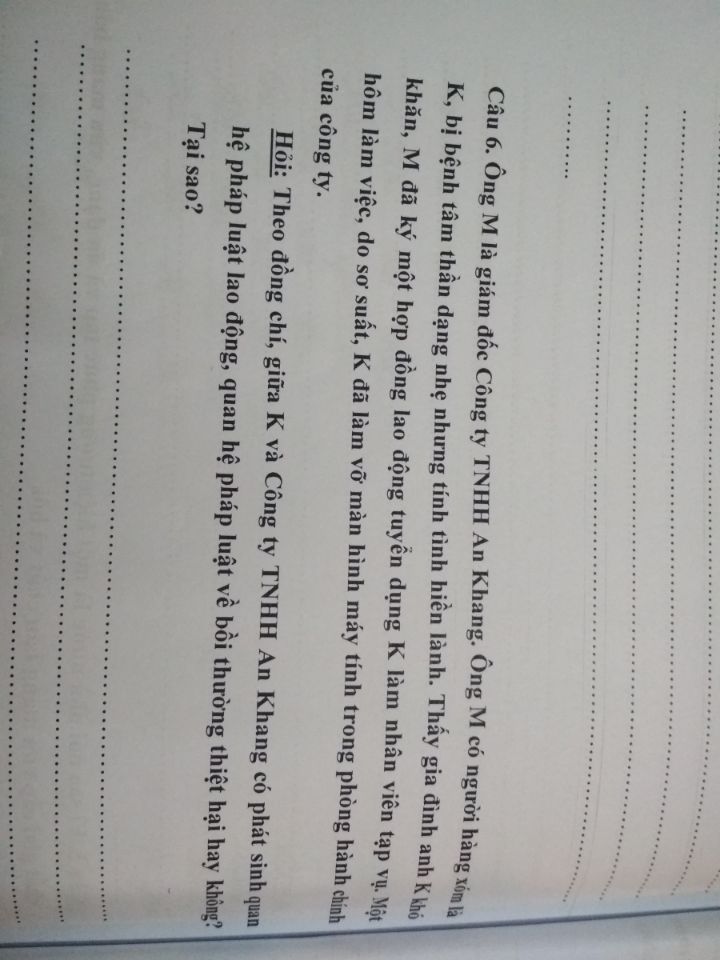 Câu 6. Ông M là giám đốc Công ty TNHH An Khang. Ông M có người hàng xóm là
K, bị bệnh tâm thần dạng nhẹ nhưng tính tình hiền lành. Thấy gia đình anh K khó
khăn, M đã ký một hợp đồng lao động tuyển dụng K làm nhân viên tạp vụ. Một
hôm làm việc, do sơ suất, K đã làm vỡ màn hình máy tính trong phòng hành chính
của công ty.
Hỏi: Theo đồng chí, giữa K và Công ty TNHH An Khang có phát sinh quan
hệ pháp luật lao động, quan hệ pháp luật về bồi thường thiệt hại hay không?
Tại sao?